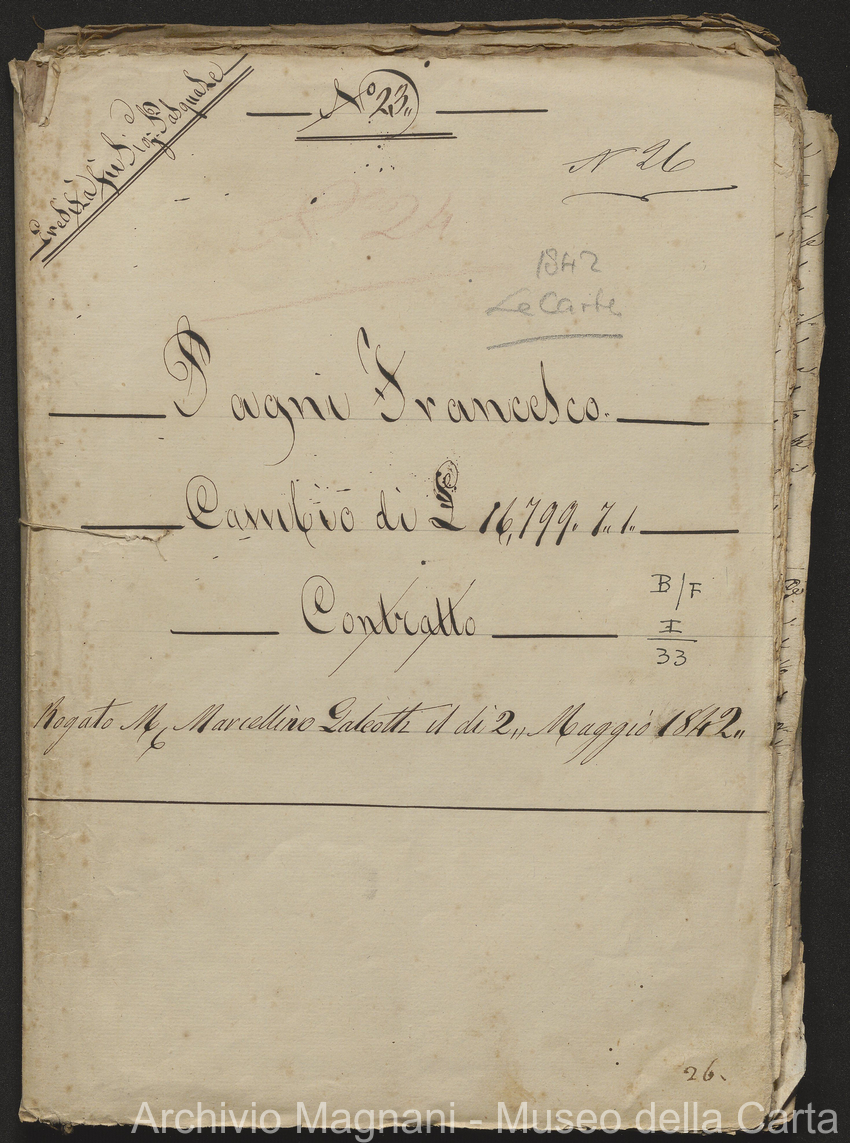 Eredità fu Sig.r Pasquale
N.o 23,,
N 26
N.o 24
1842
Le Carte
Pagni Francesco.
Cambio di £ 16,799. 7.. 1..
Contratto
B/F
I
33
Rogato M. Marcellino Galeotti il di 2,, Maggio 1842..
26.
Archivio Magnani - Museo della Carta